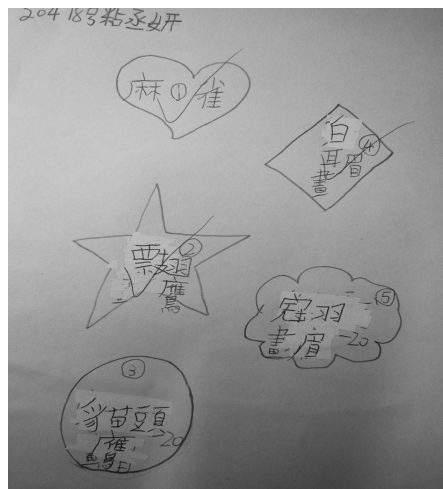 204 18号粘丞妍
麻①雀
白
④
耳眉
畫
②
票翅
鷹
⑤
冠羽
畫眉 -20
③
貓頭
鷹 -20